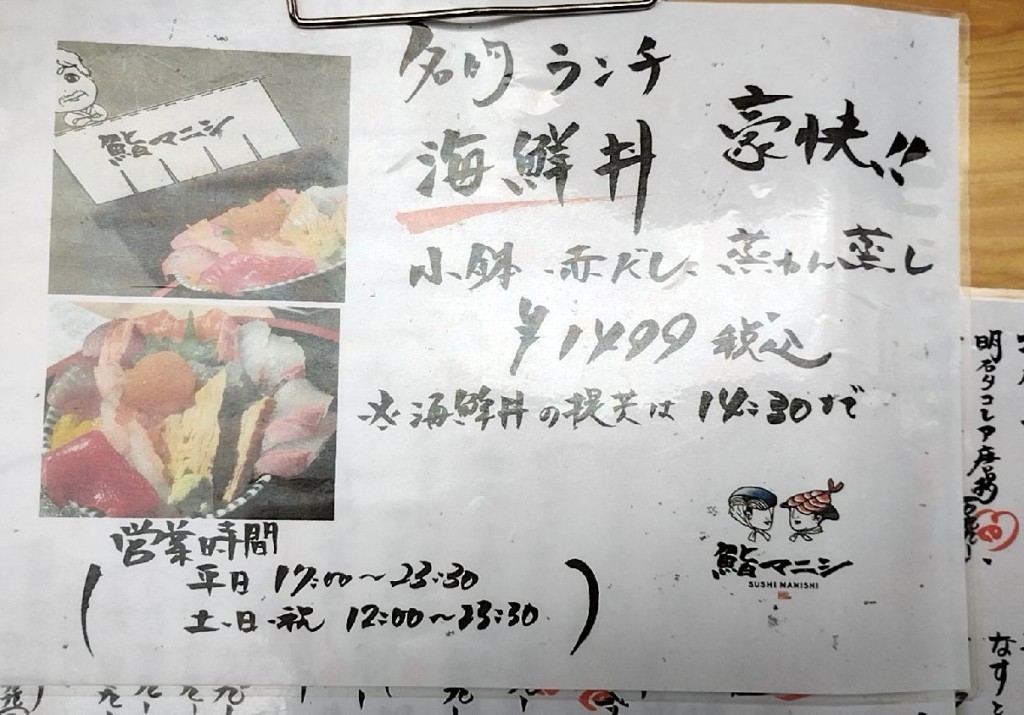 鮨マニシ
名門 ランチ
海鮮丼 豪快!!
小鉢・赤だし・茶わん蒸し
¥1499 税込
※海鮮丼の提供は 14:30まで
営業時間
平日 17:00〜23:30
土・日・祝 12:00〜23:30
鮨マニシ
SUSHI MANISHI
明石タコ
なすと